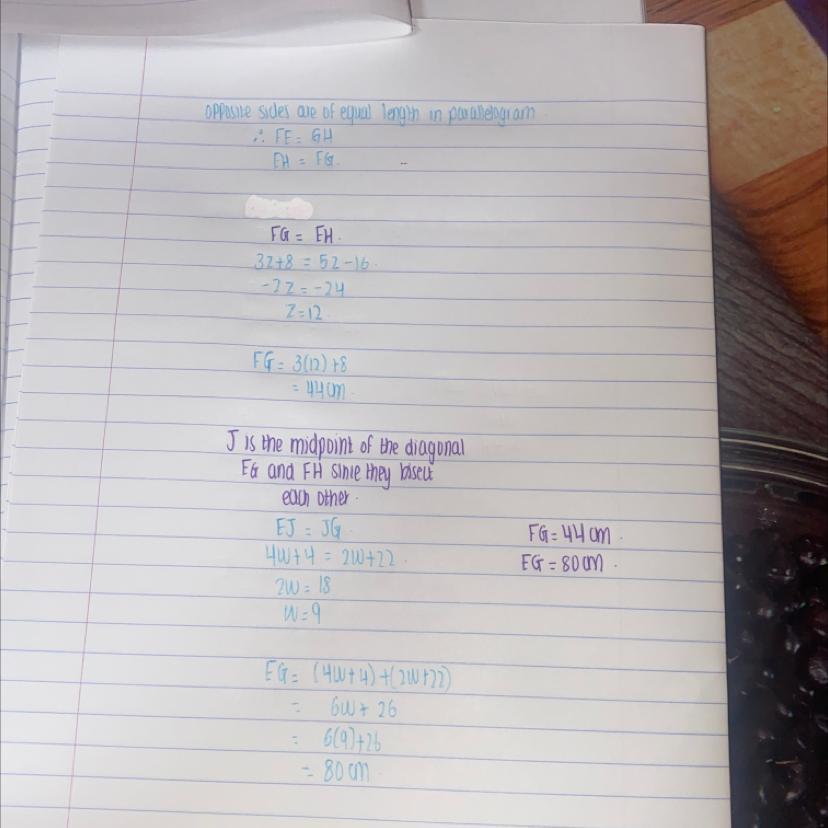 opposite sides are of equal length in parallelogram.
∴ FE = GH
EH = FG.
FG = EH.
3z+8 = 5z-16.
-2z = -24
z=12.
FG = 3(12)+8
= 44cm.
J is the midpoint of the diagonal
EG and FH since they bisect
each other.
EJ = JG.
4w+4 = 2w+22.
2w = 18
w=9
FG = 44cm.
EG = 80cm.
EG = (4w+4)+(2w+22)
= 6w+26
= 6(9)+26
= 80cm.